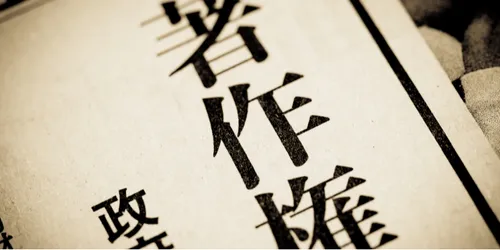 著作権
政